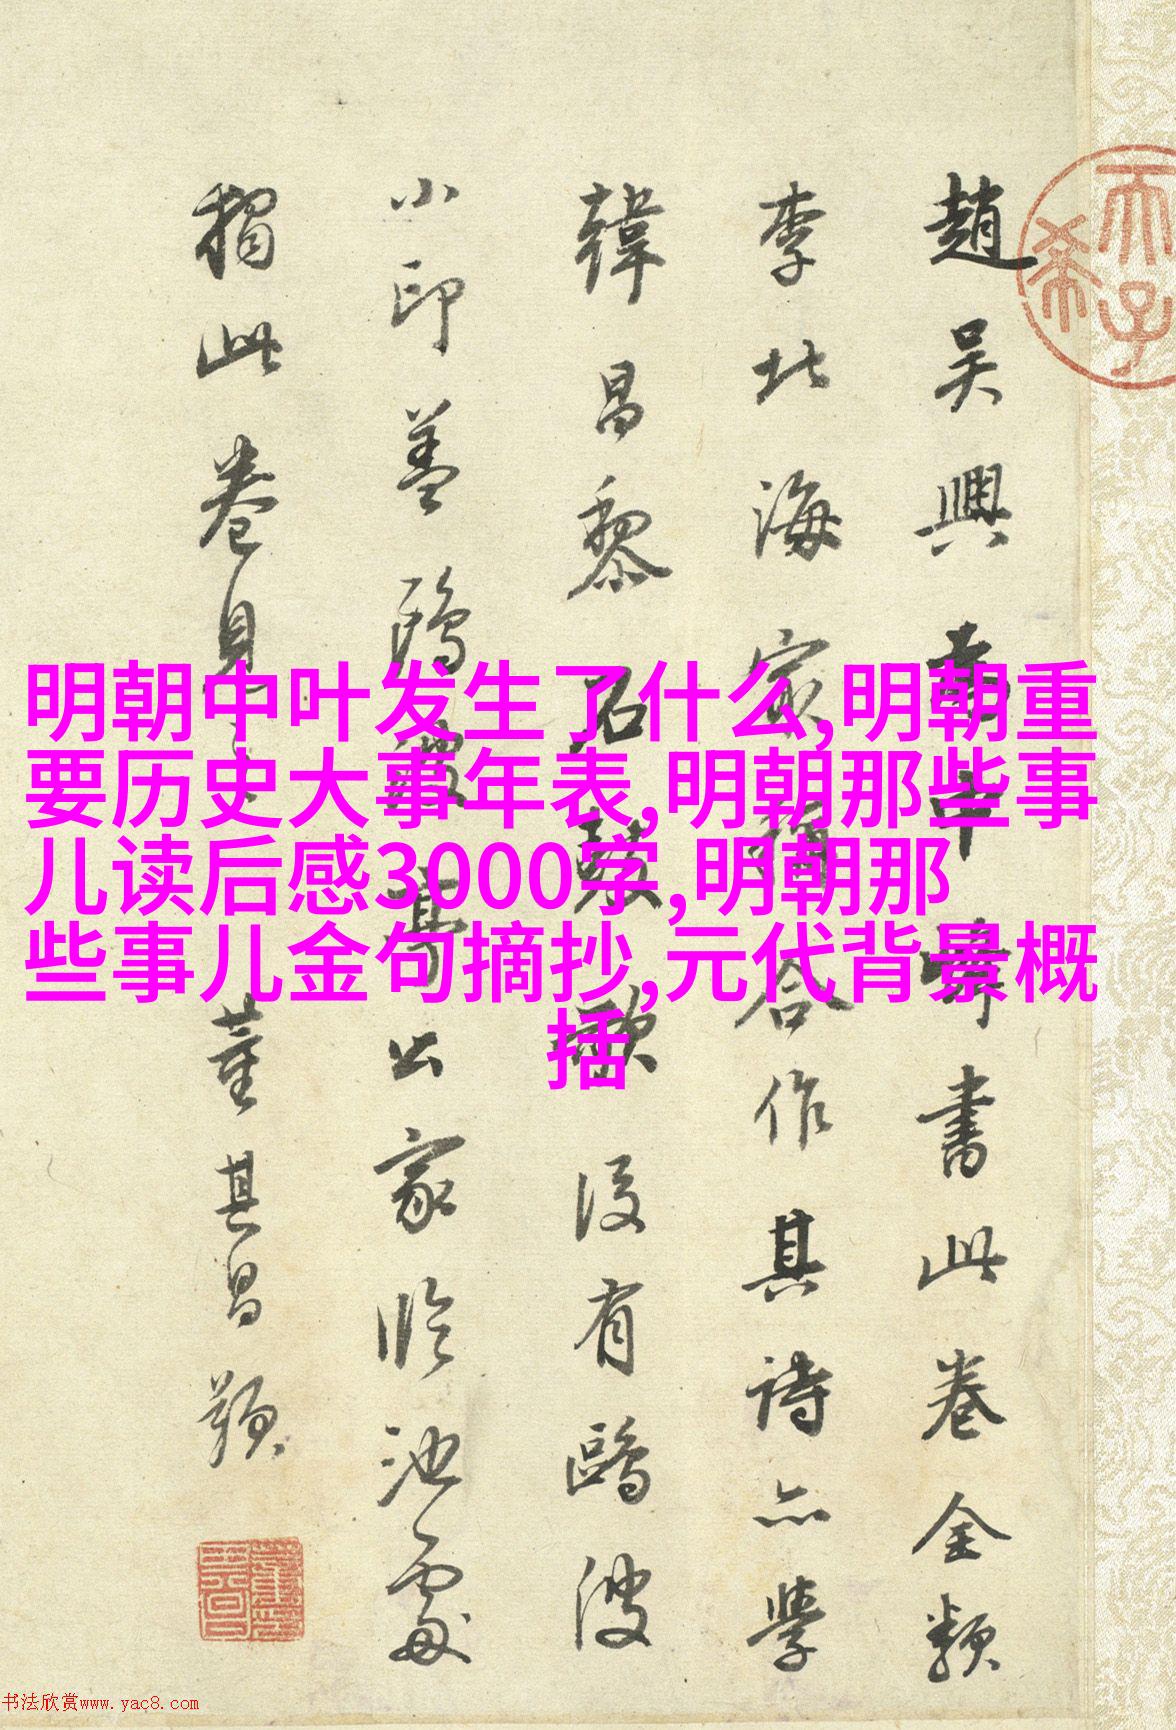 趙吳興 書此卷全類
李北海 合作其詩亦學
韓昌黎石鼓歌 後有鷗波
小印蓋鷗波 公家臨池處
獨此卷見 董其昌題
明朝中叶发生了什么,明朝重
要历史大事年表,明朝那些事
儿读后感3000字,明朝那
些事儿金句摘抄,元代背景概
括
书法欣赏www.yac8.com